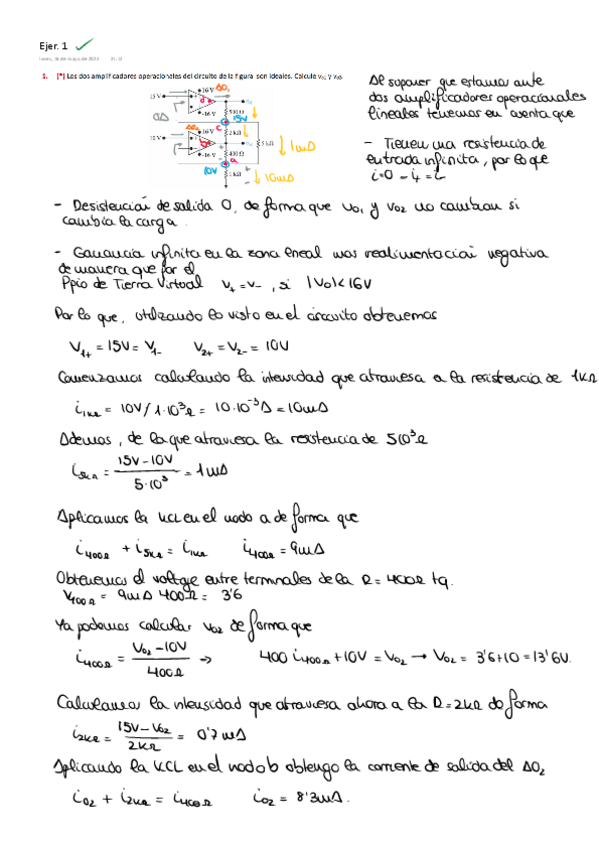 Ejer. 1
1. [*] Los dos amplificadores operacionales del circuito de la figura son ideales. Calcule vo1 y vo2.
15 V
+16 V
AO1
-16 V
500 Ω
15V
10 V
AO2
+16 V
-16 V
2 kΩ
5 kΩ
1mA
400 Ω
10V
a
1 kΩ
10mA
Al suponer que estamos ante
dos amplificadores operacionales
lineales tenemos en cuenta que
- Tienen una resistencia de
entrada infinita, por lo que
i=0 = i+ = i-
- Resistencia de salida 0, de forma que Vo1 y Vo2 no cambian si
cambia la carga.
- Ganancia infinita en la zona lineal más realimentación negativa
de manera que por el
Ppio de Tierra Virtual V+ = V- , si |Vo| < 16V
Por lo que, utilizando lo visto en el circuito obtenemos
V1+ = 15V = V1- V2+ = V2- = 10V
Comenzamos calculando la intensidad que atraviesa a la resistencia de 1KΩ
i1KΩ = 10V/1·10³Ω = 10·10⁻³A = 10mA
Además, de la que atraviesa la resistencia de 5·10³Ω
i5KΩ = (15V-10V)/(5·10³) = 1mA
Aplicamos la KCL en el nodo a de forma que
i400Ω + i5KΩ = i1KΩ i400Ω = 9mA
Obtenemos el voltaje entre terminales de la R = 400Ω tq.
V400Ω = 9mA 400Ω = 3'6
Ya podemos calcular Vo2 de forma que
i400Ω = (Vo2-10V)/400Ω → 400 i400Ω + 10V = Vo2 → Vo2 = 3'6+10 = 13'6V.
Calculamos la intensidad que atraviesa ahora a la R=2KΩ de forma
i2KΩ = (15V-Vo2)/2KΩ = 0'7mA
Aplicando la KCL en el nodo b obtengo la corriente de salida del AO2
io2 + i2KΩ = i400Ω io2 = 8'3mA.